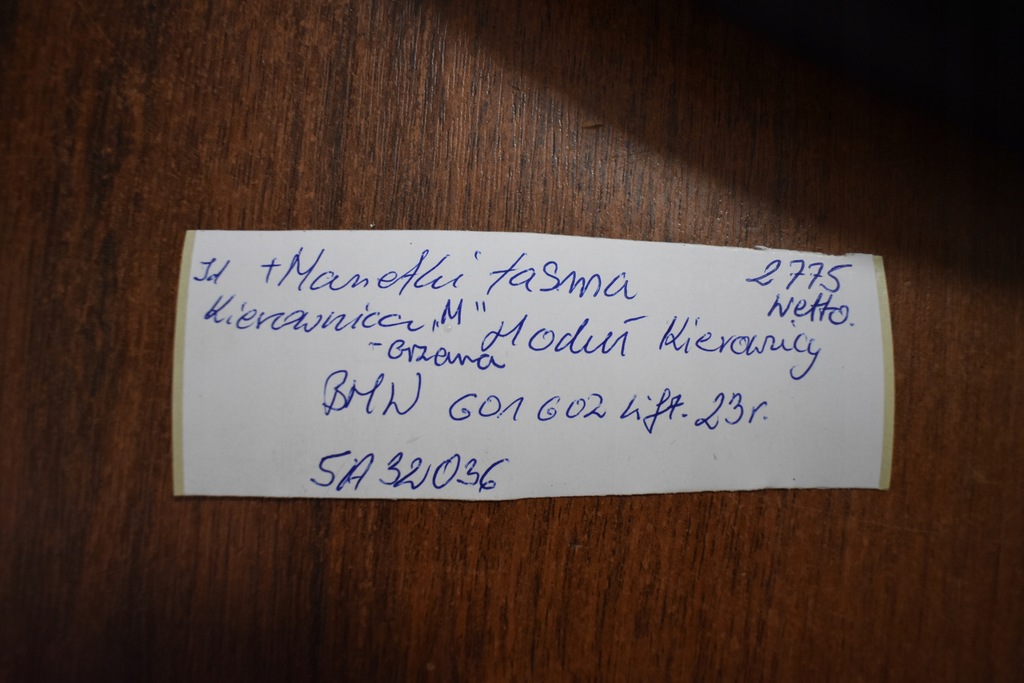 Id +Manetki taśma 2775
Kierownica „M" Moduł Kierownicy Netto.
- Grzana
BMW G01 G02 Lift. 23r.
5A32036